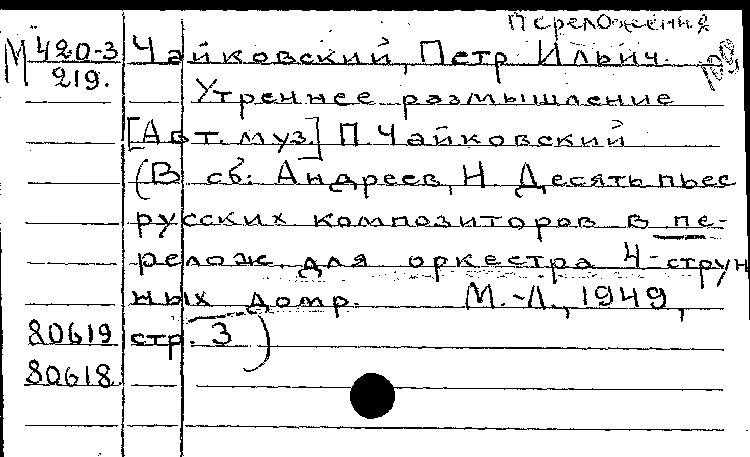 Переложения
М 420-3 Чайковский, Петр Ильич.
219. Утреннее размышление
[Авт. муз.] П. Чайковский
(В сб: Андреев, Н Десять пьес
русских композиторов в пе-
релож. для оркестра 4-струн
ных домр. М.-Л., 1949,
80619 стр. 3)
80618